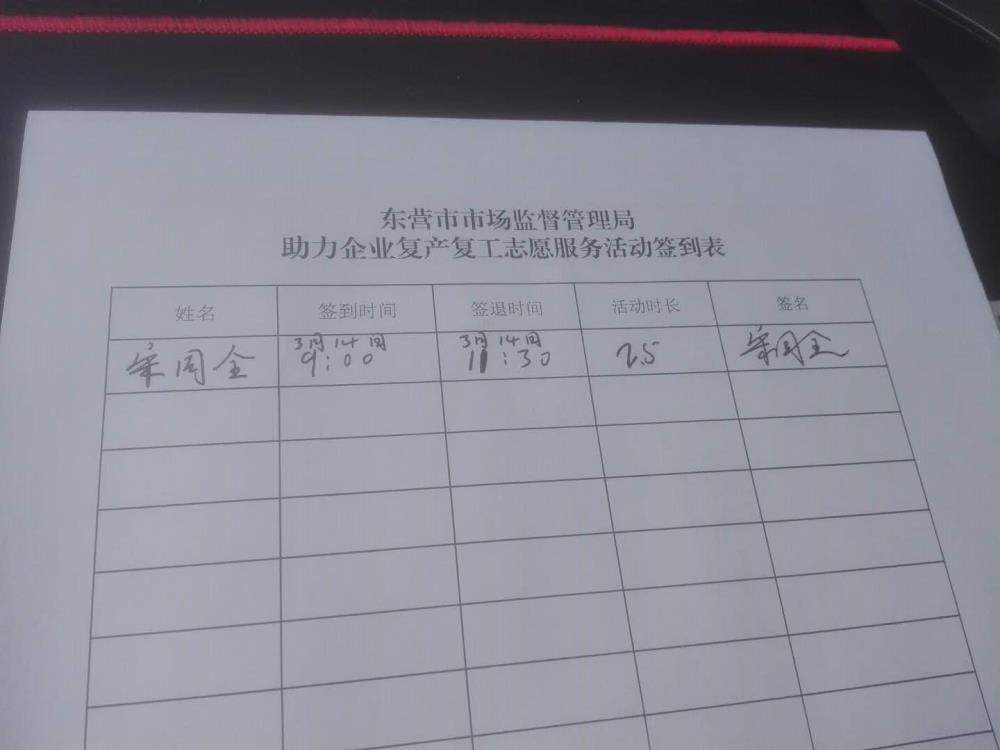 东营市市场监督管理局
助力企业复产复工志愿服务活动签到表
姓名 签到时间 签退时间 活动时长 签名
宋同全 3月14日 9:00 3月14日 11:30 2.5 宋同全